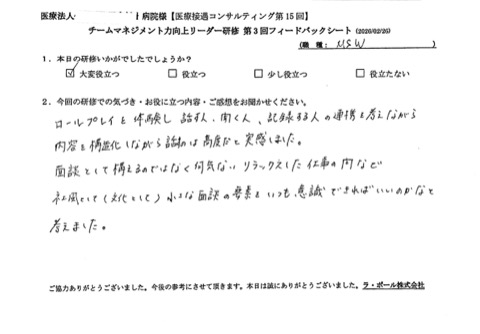 医療法人 病院様【医療接遇コンサルティング第15回】
チームマネジメント力向上リーダー研修 第3回フィードバックシート (2026/02/26)
(職 種: MSW )
1．本日の研修いかがでしたでしょうか?
☑ 大変役立つ □ 役立つ □ 少し役立つ □ 役立たない
2．今回の研修での気づき・お役に立つ内容・ご感想をお聞かせください。
ロールプレイを体験し 話す人、聞く人、記録する人の連携を考えながら
内容を構造化しながら話すのは高度だと実感しました。
面談として構えるのではなく何気ない リラックスした仕事の間など
社風として(文化として) 小さな面談の要素をいつも意識できればいいのかなと
考えました。
ご協力ありがとうございました。今後の参考にさせて頂きます。本日は誠にありがとうございました。ラ・ポール株式会社